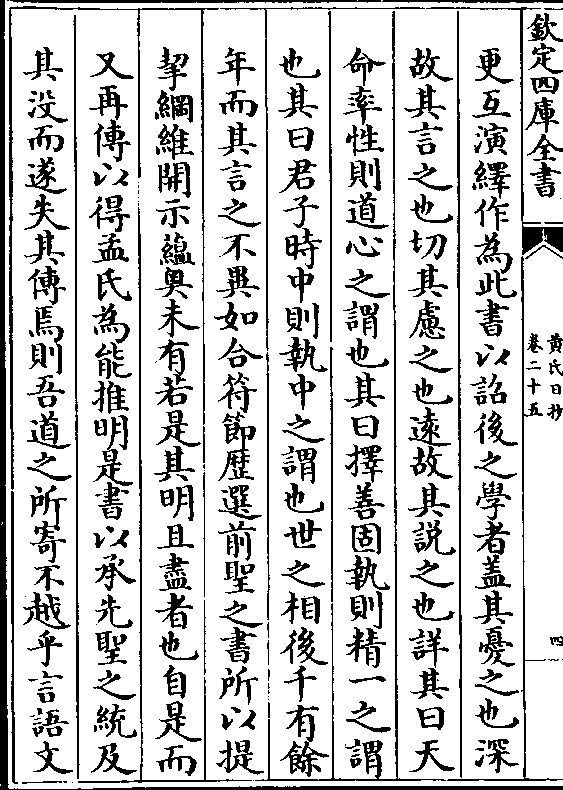 欽定四庫全書
黄氏日抄
卷二十五
四
更互演繹作為此書以詔後之學者蓋其憂之也深
故其言之也切其慮之也遠故其説之也詳其曰天
命率性則道心之謂也其曰擇善固執則精一之謂
也其曰君子時中則執中之謂也世之相後千有餘
年而其言之不異如合符節歴選前聖之書所以提
挈綱維開示藴奥未有若是其明且盡者也自是而
又再傳以得孟氏為能推明是書以承先聖之統及
其没而遂失其傳焉則吾道之所寄不越乎言語文